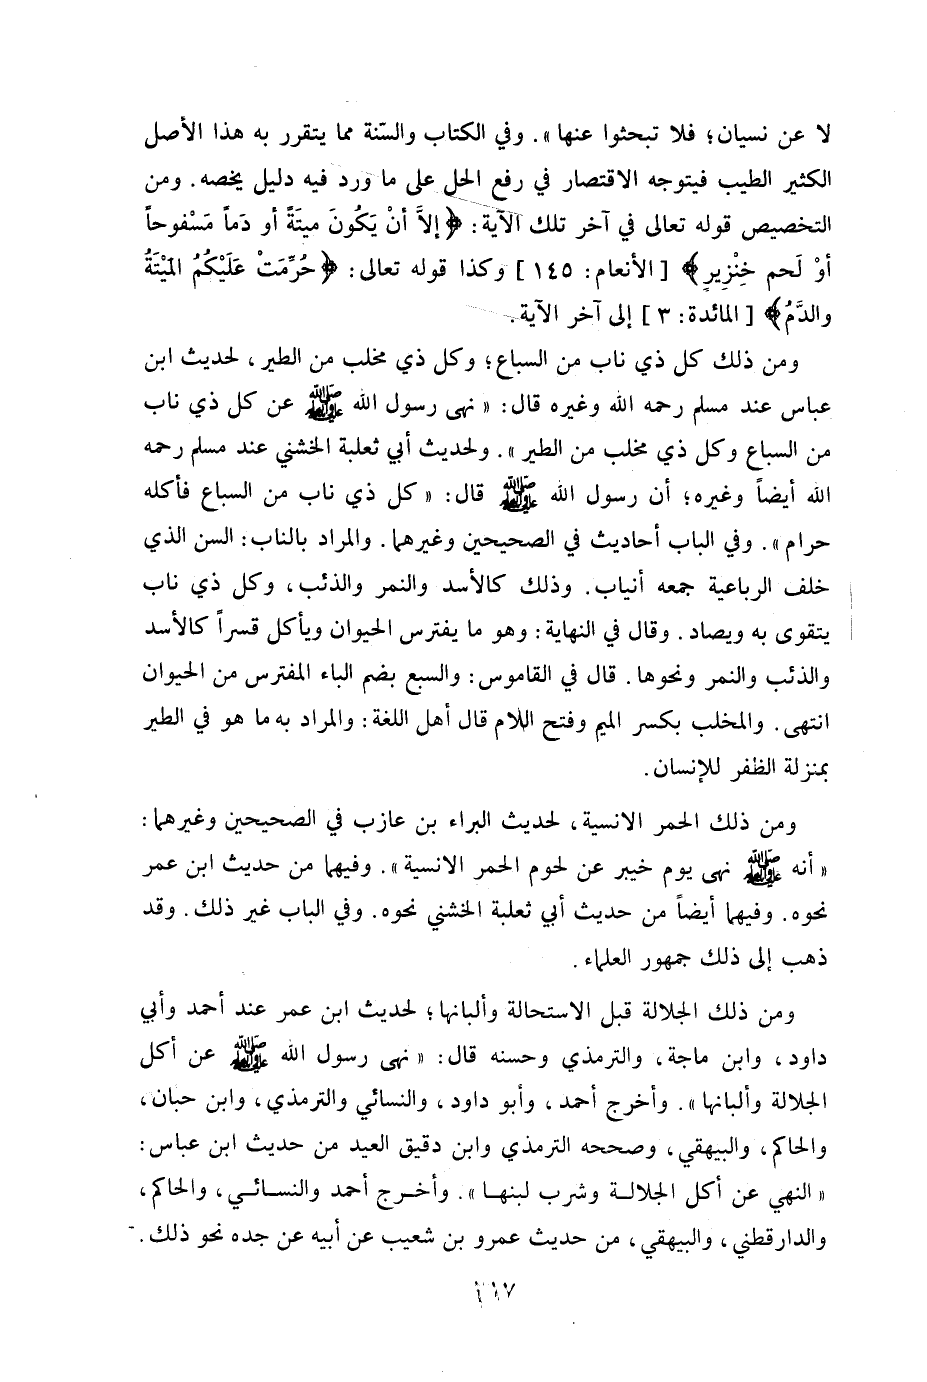 لا عن نسيان؛ فلا تبحثوا عنها». وفي الكتاب والسّنة مما يتقرر به هذا الأصل
الكثير الطيب فيتوجه الاقتصار في رفع الحل على ما ورد فيه دليل يخصه. ومن
التخصيص قوله تعالى في آخر تلك الآية: ﴿إلاَّ أنْ يَكُونَ ميتَةً أو دَماً مَسْفوحاً
أوْ لَحم خِنْزِيرٍ﴾ [الأنعام: ١٤٥] وكذا قوله تعالى: ﴿حُرِّمَتْ عَلَيْكُم الميْتَةُ
والدَّمُ﴾ [المائدة: ٣] إلى آخر الآية.
ومن ذلك كل ذي ناب من السباع؛ وكل ذي مخلب من الطير، لحديث ابن
عباس عند مسلم رحمه الله وغيره قال: «نهى رسول الله ﷺ عن كل ذي ناب
من السباع وكل ذي مخلب من الطير». ولحديث أبي ثعلبة الخشني عند مسلم رحمه
الله أيضاً وغيره؛ أن رسول الله ﷺ قال: «كل ذي ناب من السباع فأكله
حرام». وفي الباب أحاديث في الصحيحين وغيرهما. والمراد بالناب: السن الذي
خلف الرباعية جمعه أنياب. وذلك كالأسد والنمر والذئب، وكل ذي ناب
يتقوى به ويصاد. وقال في النهاية: وهو ما يفترس الحيوان ويأكل قسراً كالأسد
والذئب والنمر ونحوها. قال في القاموس: والسبع بضم الباء المفترس من الحيوان
انتهى. والمخلب بكسر الميم وفتح اللام قال أهل اللغة: والمراد به ما هو في الطير
بمنزلة الظفر للإنسان.
ومن ذلك الحمر الانسية، لحديث البراء بن عازب في الصحيحين وغيرهما:
«أنه ﷺ نهى يوم خيبر عن لحوم الحمر الانسية». وفيهما من حديث ابن عمر
نحوه. وفيهما أيضاً من حديث أبي ثعلبة الخشني نحوه. وفي الباب غير ذلك. وقد
ذهب إلى ذلك جمهور العلماء.
ومن ذلك الجلالة قبل الاستحالة وألبانها؛ لحديث ابن عمر عند أحمد وأبي
داود، وابن ماجة، والترمذي وحسنه قال: «نهى رسول الله ﷺ عن أكل
الجلالة وألبانها». وأخرج أحمد، وأبو داود، والنسائي والترمذي، وابن حبان،
والحاكم، والبيهقي، وصححه الترمذي وابن دقيق العيد من حديث ابن عباس:
«النهي عن أكل الجلالة وشرب لبنها». وأخرج أحمد والنسائي، والحاكم،
والدارقطني، والبيهقي، من حديث عمرو بن شعيب عن أبيه عن جده نحو ذلك.